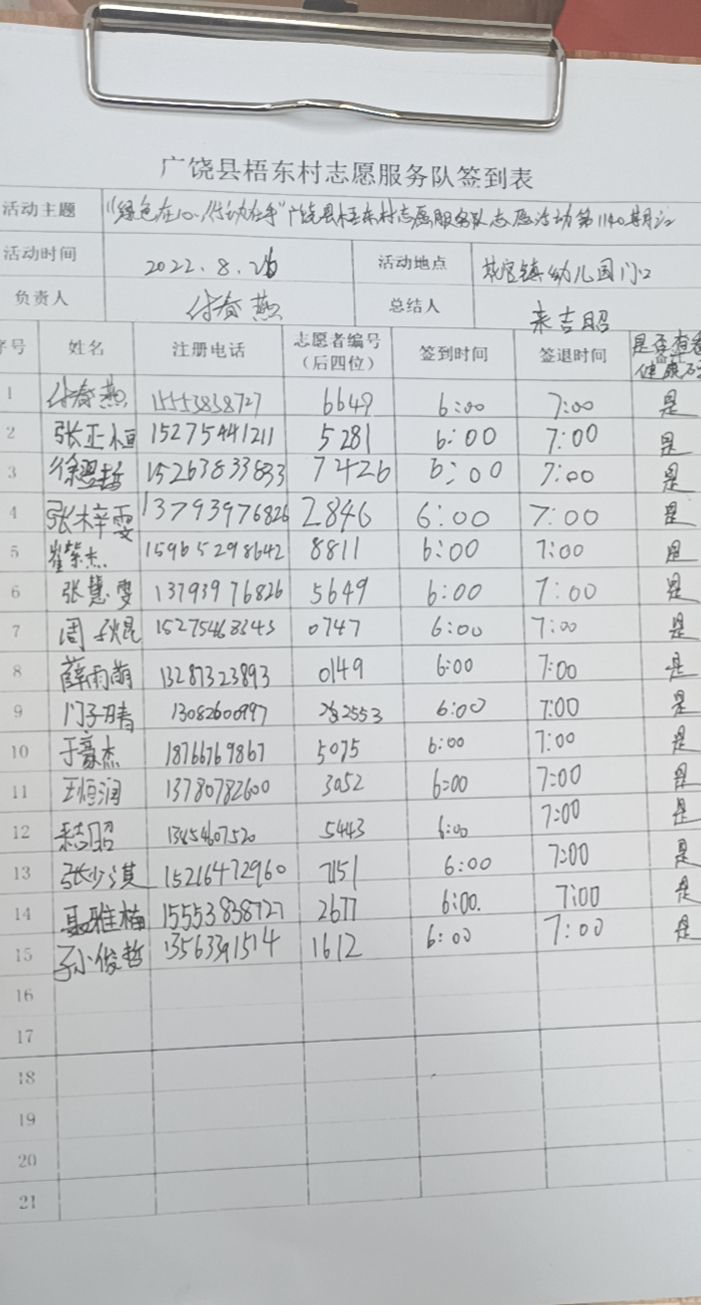 广饶县梧东村志愿服务队签到表
活动主题 "绿色在心 行动在手"广饶县梧东村志愿服务队志愿活动第1140期
活动时间 2022.8.26 活动地点 幼儿园门口
负责人 付春燕 总结人 来吉昭
序号 姓名 注册电话 志愿者编号（后四位） 签到时间 签退时间 是否查看健康码
1 付春燕 15553838727 6649 6:00 7:00 是
2 张正恒 15275441211 5281 6:00 7:00 是
3 徐 15263833833 7426 6:00 7:00 是
4 张梓雯 13793976826 2846 6:00 7:00 是
5 崔 杰 15965298642 8811 6:00 7:00 是
6 张慧雯 13793976826 5649 6:00 7:00 是
7 周 焜 15275468343 0747 6:00 7:00 是
8 薛雨萌 13287323893 0149 6:00 7:00 是
9 门子晴 2553 6:00 7:00 是
10 于豪杰 18766769867 5075 6:00 7:00 是
11 王恒润 13780782600 3052 6:00 7:00 是
12 来吉昭 13454607520 5443 6:00 7:00 是
13 张少淇 15216472960 7151 6:00 7:00 是
14 聂雅楠 15553838727 2677 6:00. 7:00 是
15 孙俊哲 13563391514 1612 6:00 7:00 是
16
17
18
19
20
21